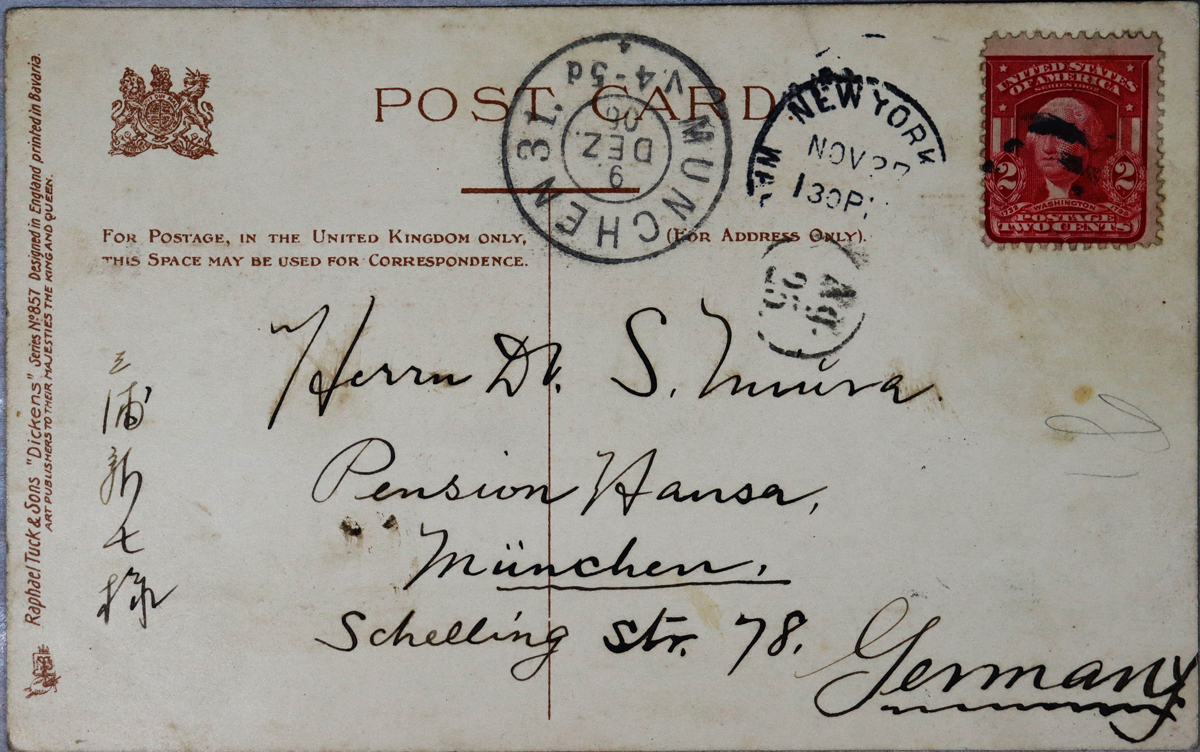 POST CARD
FOR POSTAGE, IN THE UNITED KINGDOM ONLY,
THIS SPACE MAY BE USED FOR CORRESPONDENCE.
(FOR ADDRESS ONLY).
Raphael Tuck & Sons "Dickens" Series No 857 Designed in England printed in Bavaria.
ART PUBLISHERS TO THEIR MAJESTIES THE KING AND QUEEN.
MUNCHEN 31.
9
DEZ.
06
V.4-5d
NEW YORK
NOV
130P
UNITED STATES
OF AMERICA
SERIES 1902
2 2
WASHINGTON
POSTAGE
TWO CENTS
Herrn Dr. S. Miura
Pension Hansa,
München.
Schelling Str. 78.
Germany
三浦新七様